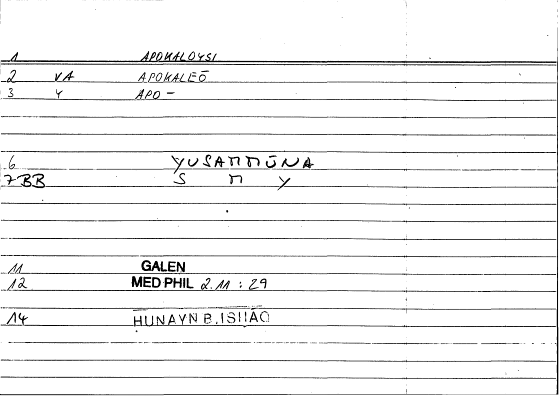 1 APOKALOYSI
2 VA APOKALEŌ
3 Y APO-
6 YUSAMMŪNA
7 BB S M Y
11 GALEN
12 MED PHIL 2.11 : 29
14 HUNAYN B. ISḤĀQ